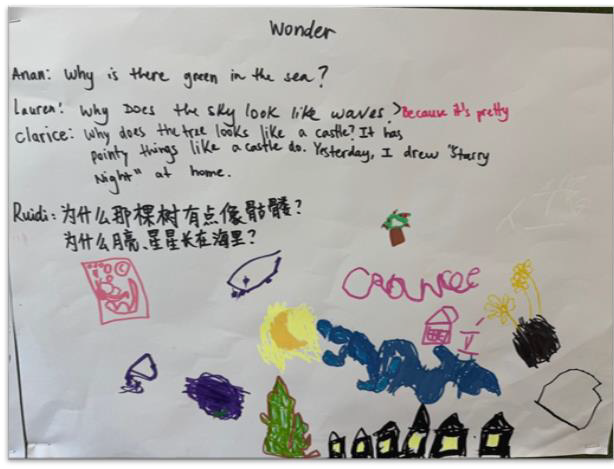 Wonder
Anan: Why is there green in the sea?
Lauren: Why Does the sky look like waves? Because it's pretty
Clarice: Why does the tree looks like a castle? It has
pointy things like a castle do. Yesterday, I drew "Starry
Night" at home.
Ruidi: 为什么那棵树有点像骷髅?
为什么月亮、星星长在海里?